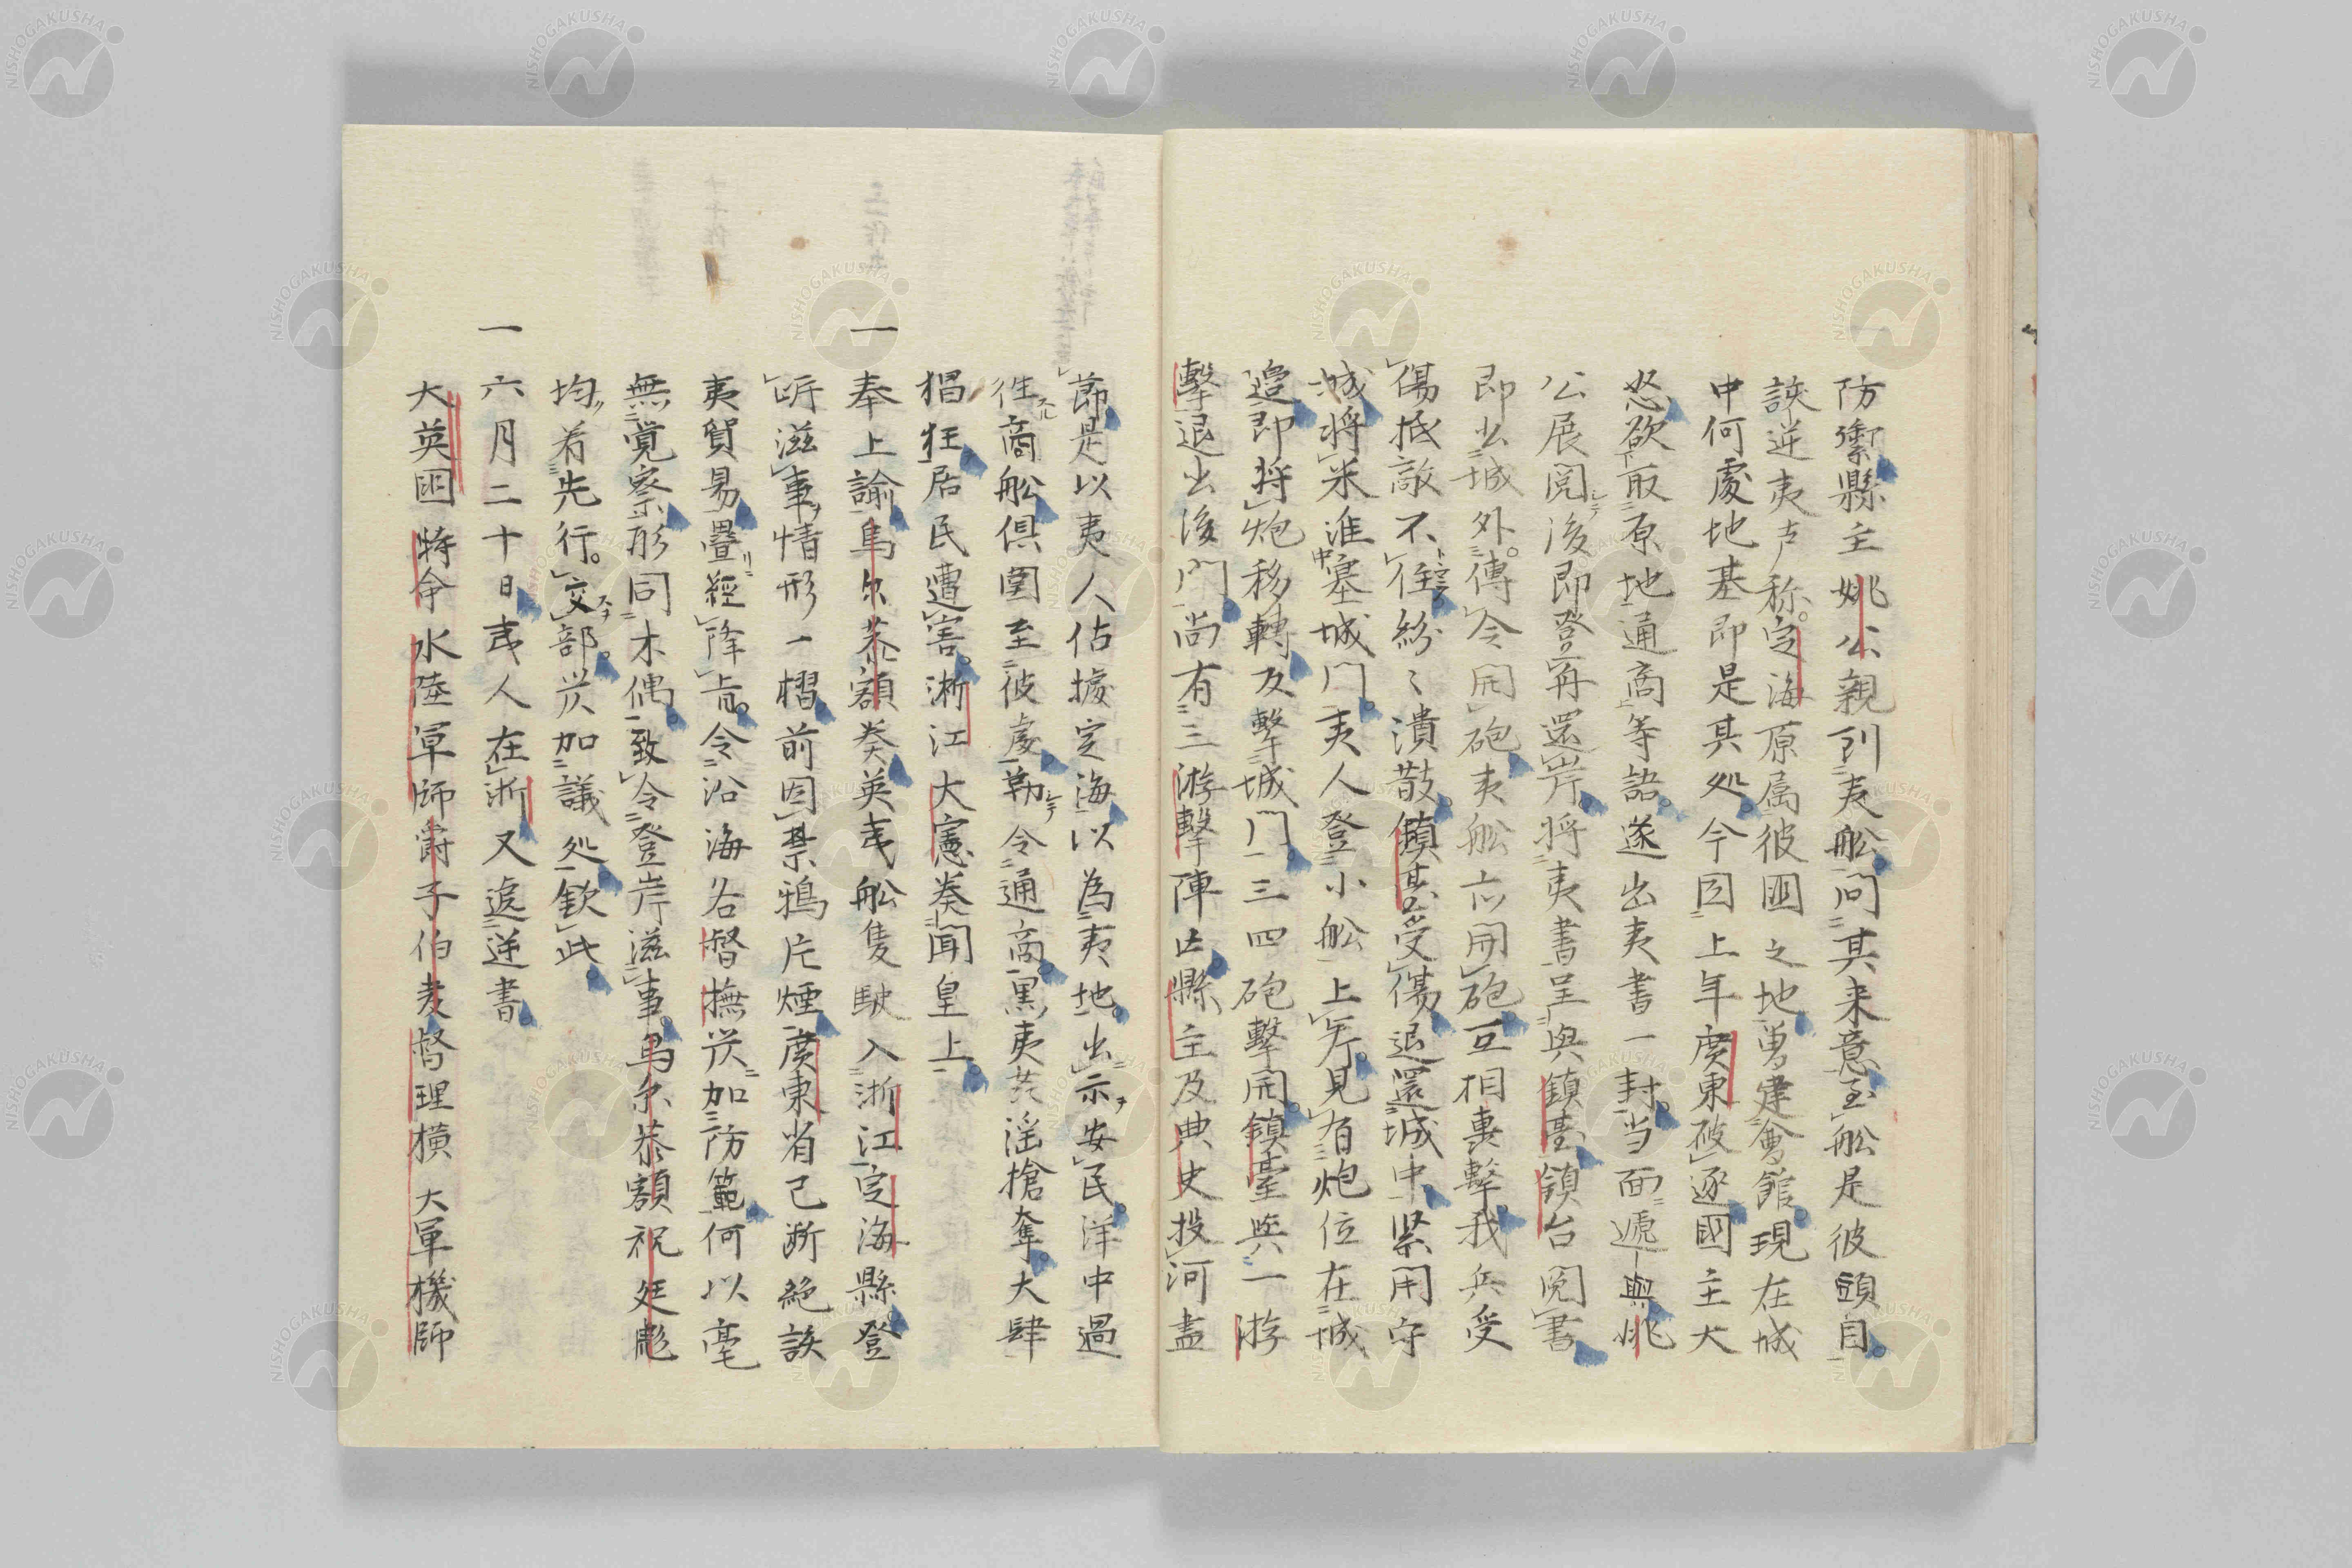 防禦縣主姚公親到夷舩問其来意至舩是彼頭目
誤逆夷声称定海原属彼囯之地曽建會館現在城
中何處地基即是其処今因上年廣東破逐國主大
怒欲取原地通商等語遂出夷書一封当面遞與姚
公展閲後即登再還岸将夷書呈與鎮臺鎮台閲書
即出城外傳令開砲夷舩亦開砲互相轟擊我兵受
傷抵敵不住紛〻潰散鎮其受傷退還城中緊閉守
城将米准墓城門夷人登小舩上岸見有炮位在城
邉即将炮移轉及擊城門三四砲擊開鎮臺與一游
擊退出後門尚有三游擊陣亡縣主及典史投河盡
節是以夷人佔據定海以為夷地出示安民洋中過
徃商舩俱圍至彼處勒令通商黒夷茂滛搶奪大肆
猖狂居民遭害浙江大憲奏聞皇上
一奉上諭烏尓恭額奏英夷舩隻駛入浙江定海縣登
岍滋事情形一摺前因禁鴉片煙廣東省已断絶誤
夷貿易疊經降旨令沿海各督撫茂加防範何以毫
無覚察形同木偶致令登岸滋事烏尓恭額祝廷彪
均着先行交部茂加議処欽此
一六月二十日夷人在浙又逞逆書
大英囯特命水陸軍師爵子伯麦督理横大軍機師